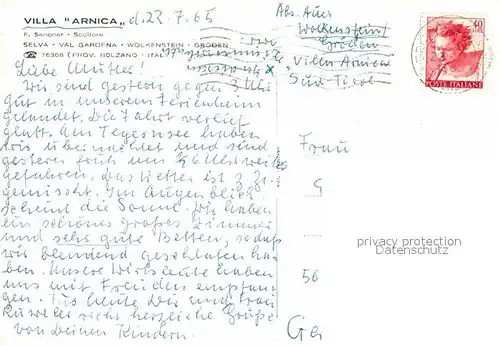 VILLA "ARNICA" d. 22.7.65
F. Senoner - Scultore
SELVA - VAL GARDENA - WOLKENSTEIN - GRÖDEN
☎ 75306 (PROV. BOLZANO - ITALY)
Liebe Mutter!
Wir sind gestern gegen 3 Uhr
gut in unserem Ferienheim
gelandet. Die Fahrt verlief
glatt. Am Tegernsee haben
wir übernachtet und sind
gestern früh um 1/2 6 Uhr weiter
gefahren, das Wetter ist z. Zt.
gemischt. Im Augenblick
scheint die Sonne. Wir haben
ein schönes großes Zimmer
und sehr gute Betten, so daß
wir blendend geschlafen ha-
ben. Unsere Wirtsleute haben
uns mit Freuden empfan-
gen. Für heute Dir und Frau
recht herzliche Grüße
von Deinen Kindern.
Abs. Auer
Wolkenstein/
Gröden
"Villa Arnica"
Süd Tirol
40
POSTE ITALIANE
Frau
G
56
Ge
privacy protection
Datenschutz